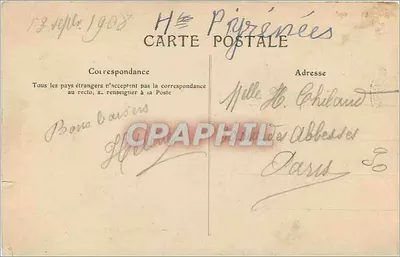 17 septbre 1908
Hes Pyrénées
CARTE POSTALE
Correspondance
Tous les pays étrangers n'acceptent pas la correspondance
au recto, se renseigner à la Poste
Bons baisers
Adresse
Melle H. Thibaud
des Abbesses
Paris
CPARAMA.COM